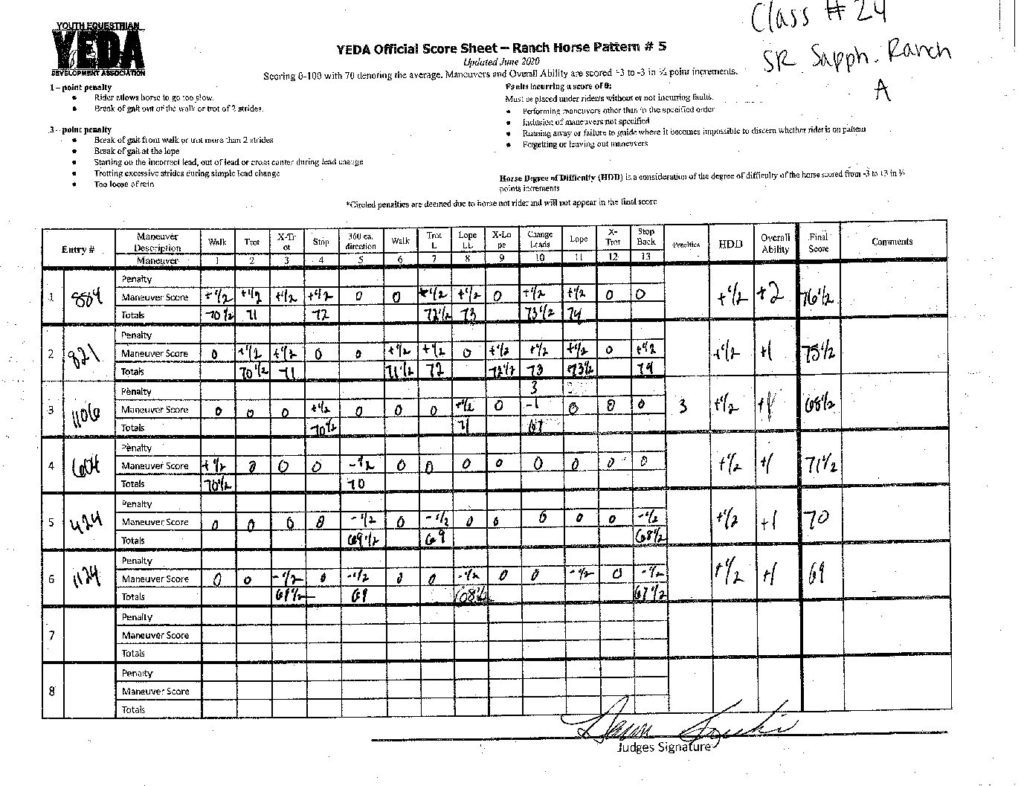 Class # 24
SR Sapph. Ranch
A
YOUTH EQUESTRIAN
YEDA
DEVELOPMENT ASSOCIATION
YEDA Official Score Sheet – Ranch Horse Pattern # 5
Updated June 2020
Scoring 0-100 with 70 denoting the average. Maneuvers and Overall Ability are scored +3 to -3 in ½ point increments.
1 – point penalty
• Rider allows horse to go too slow.
• Break of gait out of the walk or trot of 2 strides.
3 - point penalty
• Break of gait from walk or trot more than 2 strides
• Break of gait at the lope
• Starting on the incorrect lead, out of lead or cross canter during lead change
• Trotting excessive strides during simple lead change
• Too loose of rein
Faults incurring a score of 0:
Must be placed under riders without or not incurring faults.
• Performing maneuvers other than in the specified order
• Inclusion of maneuvers not specified
• Running away or failure to guide where it becomes impossible to discern whether rider is on pattern
• Forgetting or leaving out maneuvers
Horse Degree of Difficulty (HDD) is a consideration of the degree of difficulty of the horse scored from -3 to +3 in ½
points increments
*Circled penalties are deemed due to horse not rider and will not appear in the final score
Entry # Maneuver Description Walk Trot X-Trot Stop 360 ea. direction Walk Trot L Lope LL X-Lope Change Leads Lope X-Trot Stop Back Penalties HDD Overall Ability Final Score Comments
Maneuver 1 2 3 4 5 6 7 8 9 10 11 12 13
Penalty
1 884 Maneuver Score +½ +½ +½ +½ 0 0 +½ +½ 0 +½ +½ 0 0 +½ +2 76½
Totals 70½ 71 72 72½ 73 73½ 74
Penalty
2 821 Maneuver Score 0 +½ +½ 0 0 +½ +½ 0 +½ +½ +½ 0 +½ +½ +1 75½
Totals 70½ 71 71½ 72 72½ 73 73½ 74
Penalty 3
3 1106 Maneuver Score 0 0 0 +½ 0 0 0 +½ 0 -1 0 0 0 3 +½ +1 68½
Totals 70½ 71 67
Penalty
4 604 Maneuver Score +½ 0 0 0 -½ 0 0 0 0 0 0 0 0 +½ +1 71½
Totals 70½ 70
Penalty
5 424 Maneuver Score 0 0 0 0 -½ 0 -½ 0 0 0 0 0 -½ +½ +1 70
Totals 69½ 69 68½
Penalty
6 1124 Maneuver Score 0 0 -½ 0 -½ 0 0 -½ 0 0 -½ 0 -½ +½ +1 69
Totals 69½ 69 68½ 67½
Penalty
7 Maneuver Score
Totals
Penalty
8 Maneuver Score
Totals
Judges Signature